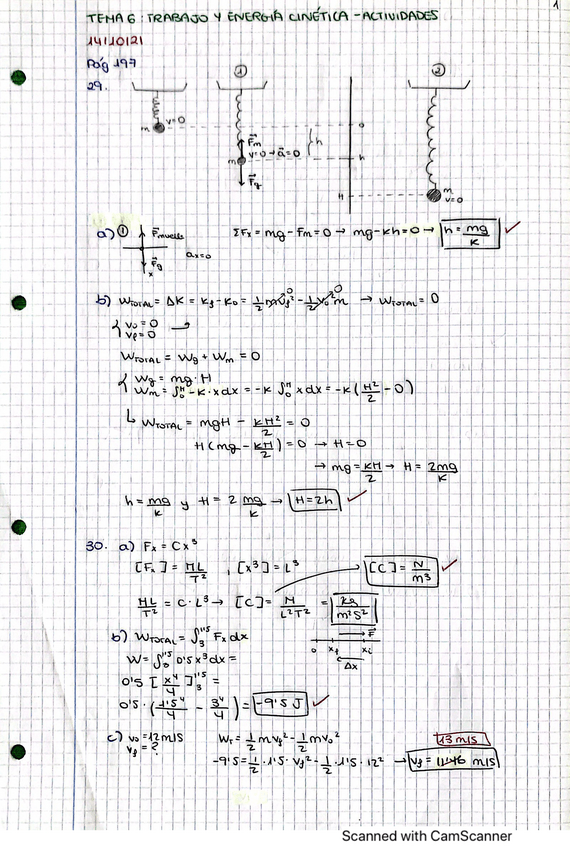 1
TEMA 6: TRABAJO Y ENERGÍA CINÉTICA - ACTIVIDADES
14/10/21
Pág 197
29.
① ②
m v=0
F⃗m
v=0→a⃗=0
m
F⃗g
0
h
h
H
m
v=0
a) ① F⃗muelle
F⃗g
x
ax=0
ΣFx = mg - Fm = 0 → mg - kh = 0 → h = mg/K ✓
b) WTOTAL = ΔK = Kf - K0 = 1/2 mvf² - 1/2 v0² m → WTOTAL = 0
0 0
{ v0 = 0 →
vf = 0
WTOTAL = Wg + Wm = 0
{ Wg = mg·H
Wm = ∫₀ᴴ -K·x dx = -K ∫₀ᴴ x dx = -K (H²/2 - 0)
↳ WTOTAL = mgH - KH²/2 = 0
H(mg - KH/2) = 0 → H = 0
→ mg = KH/2 → H = 2mg/K
h = mg/K y H = 2 mg/K → H = 2h ✓
30. a) Fx = Cx³
[Fx] = ML/T² , [x³] = L³ [C] = N/m³ ✓
ML/T² = C·L³ → [C] = M/L²T² = kg/m²s²
b) WTOTAL = ∫₃^1'5 Fx dx
F⃗
0 xf xi
Δx
W = ∫₀^1'5 0'5 x³ dx =
0'5 [x⁴/4]₃^1'5 =
0'5 · (1'5⁴/4 - 3⁴/4) = -9'5 J ✓
c) v0 = 12 m/s WT = 1/2 mvf² - 1/2 mv0² 13 m/s
vf = ?
-9'5 = 1/2 · 1'5 · vf² - 1/2 · 1'5 · 12² → vf = 11'46 m/s
Scanned with CamScanner